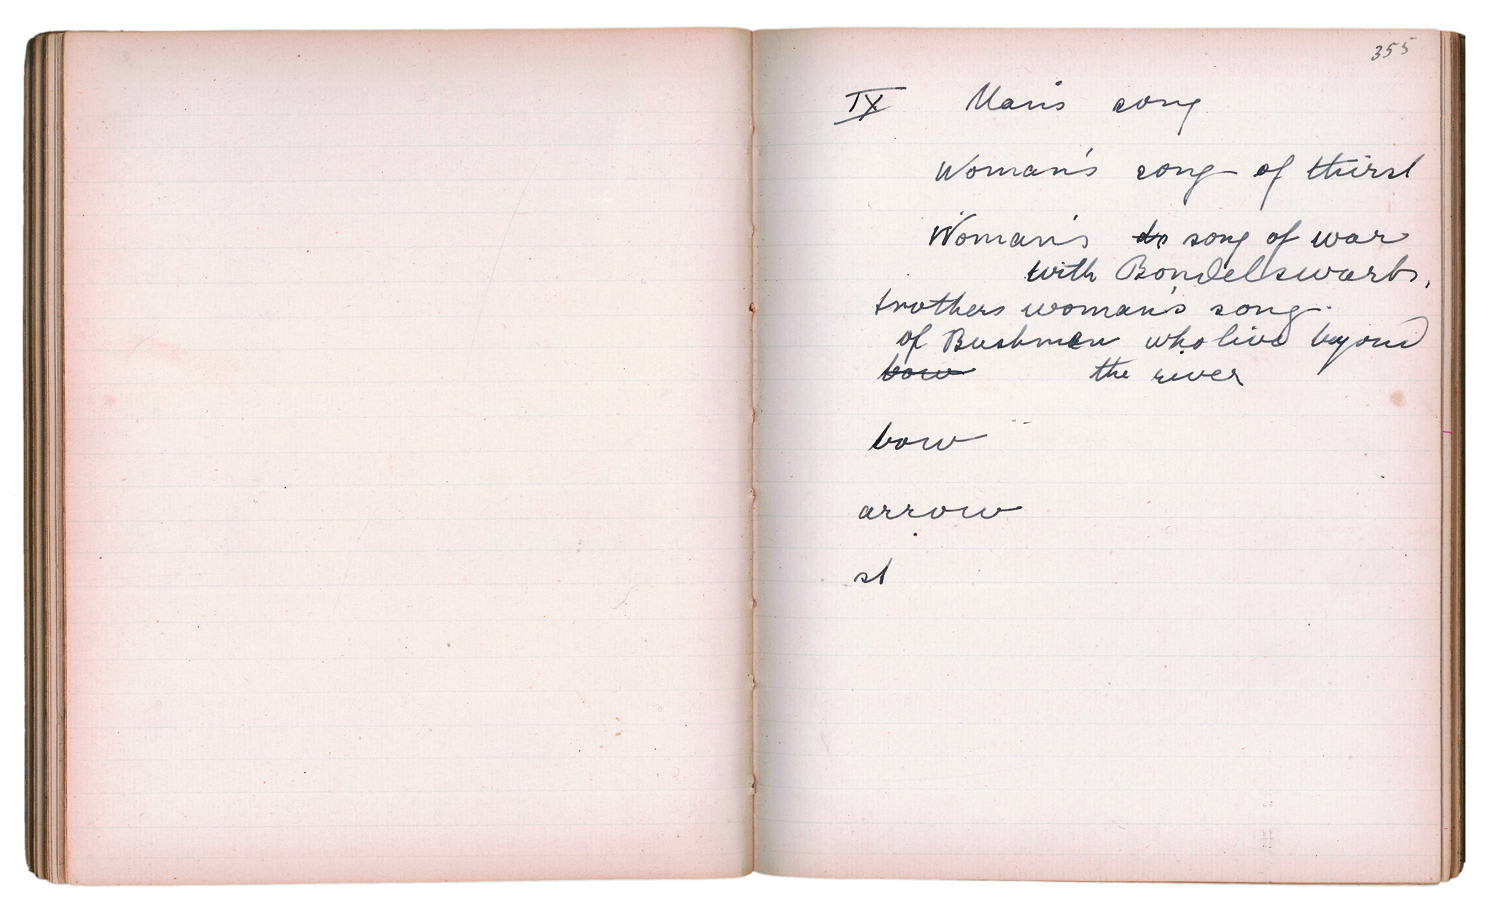 355
IX Man's song
Woman's song of thirst
Woman's do song of war
with Bondelswarts,
brothers woman's song.
of Bushmen who live beyond
bow the river
bow
arrow
st